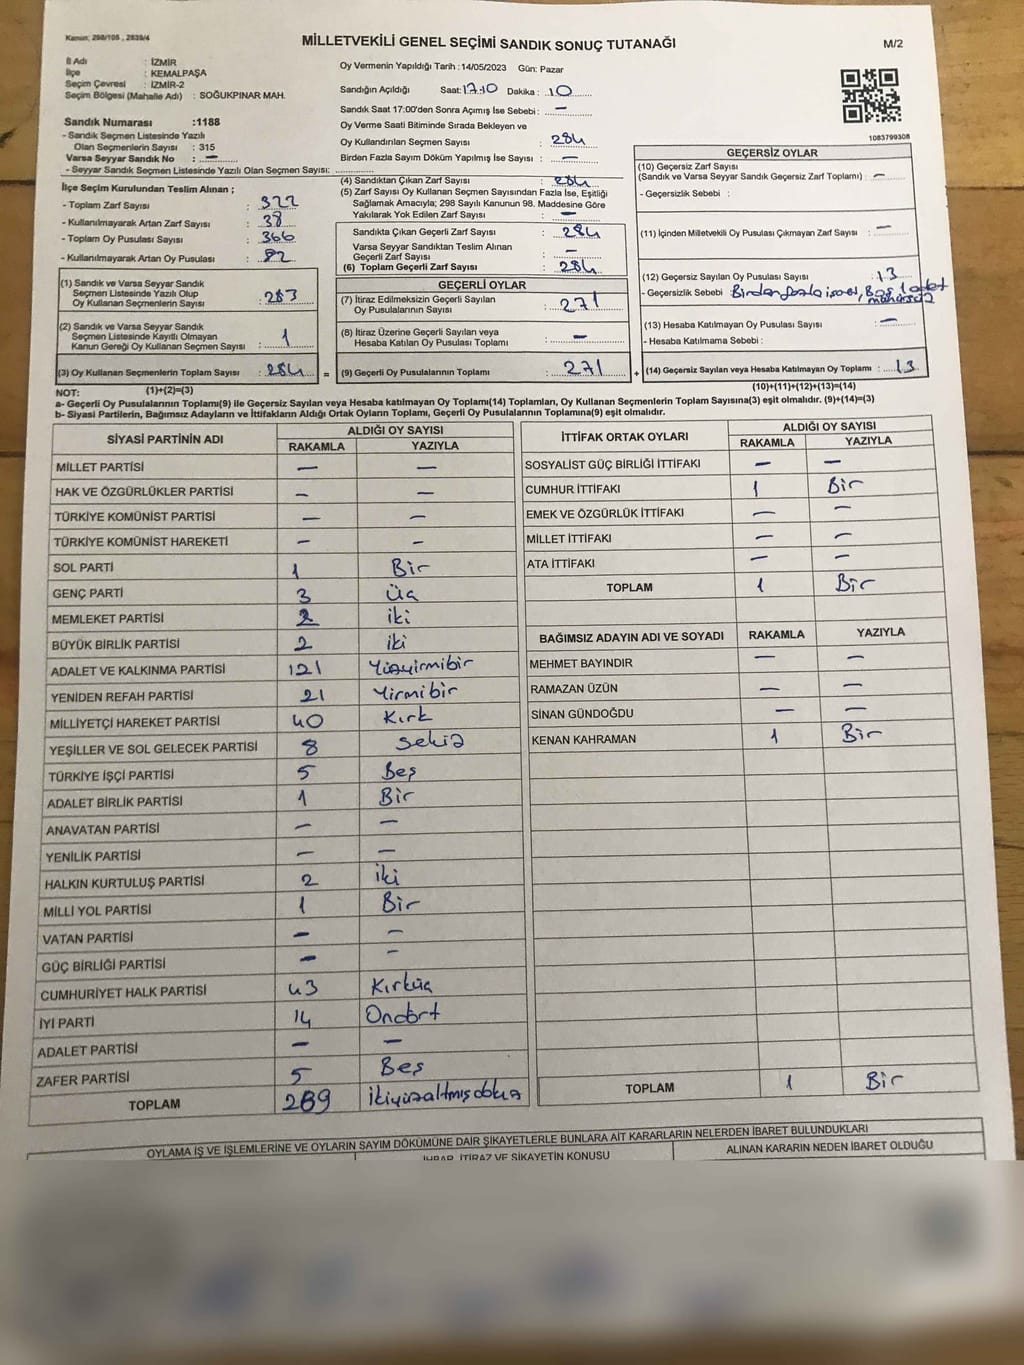 Kanun: 298/105 , 2839/4
MİLLETVEKİLİ GENEL SEÇİMİ SANDIK SONUÇ TUTANAĞI
M/2
İl Adı : İZMİR
İlçe : KEMALPAŞA
Seçim Çevresi : İZMİR-2
Seçim Bölgesi (Mahalle Adı) : SOĞUKPINAR MAH.
Oy Vermenin Yapıldığı Tarih : 14/05/2023 Gün: Pazar
Sandığın Açıldığı Saat: 17:10 Dakika : 10
Sandık Saat 17:00'den Sonra Açımış İse Sebebi : —
Oy Verme Saati Bitiminde Sırada Bekleyen ve
Oy Kullandırılan Seçmen Sayısı : 284
Birden Fazla Sayım Döküm Yapılmış İse Sayısı : —
1083799308
Sandık Numarası :1188
- Sandık Seçmen Listesinde Yazılı
Olan Seçmenlerin Sayısı : 315
Varsa Seyyar Sandık No : —
- Seyyar Sandık Seçmen Listesinde Yazılı Olan Seçmen Sayısı:
İlçe Seçim Kurulundan Teslim Alınan ;
- Toplam Zarf Sayısı : 322
- Kullanılmayarak Artan Zarf Sayısı : 38
- Toplam Oy Pusulası Sayısı : 366
- Kullanılmayarak Artan Oy Pusulası : 82
(1) Sandık ve Varsa Seyyar Sandık
Seçmen Listesinde Yazılı Olup
Oy Kullanan Seçmenlerin Sayısı : 283
(2) Sandık ve Varsa Seyyar Sandık
Seçmen Listesinde Kayıtlı Olmayan
Kanun Gereği Oy Kullanan Seçmen Sayısı : 1
(3) Oy Kullanan Seçmenlerin Toplam Sayısı : 284 =
(4) Sandıktan Çıkan Zarf Sayısı : 284
(5) Zarf Sayısı Oy Kullanan Seçmen Sayısından Fazla İse, Eşitliği
Sağlamak Amacıyla; 298 Sayılı Kanunun 98. Maddesine Göre
Yakılarak Yok Edilen Zarf Sayısı : —
Sandıkta Çıkan Geçerli Zarf Sayısı : 284
Varsa Seyyar Sandıktan Teslim Alınan
Geçerli Zarf Sayısı : —
(6) Toplam Geçerli Zarf Sayısı : 284
GEÇERLİ OYLAR
(7) İtiraz Edilmeksizin Geçerli Sayılan
Oy Pusulalarının Sayısı : 271
(8) İtiraz Üzerine Geçerli Sayılan veya
Hesaba Katılan Oy Pusulası Toplamı : —
(9) Geçerli Oy Pusulalarının Toplamı : 271 +
GEÇERSİZ OYLAR
(10) Geçersiz Zarf Sayısı
(Sandık ve Varsa Seyyar Sandık Geçersiz Zarf Toplamı) : —
- Geçersizlik Sebebi :
(11) İçinden Milletvekili Oy Pusulası Çıkmayan Zarf Sayısı : —
(12) Geçersiz Sayılan Oy Pusulası Sayısı : 13
- Geçersizlik Sebebi : Birden fazla
(13) Hesaba Katılmayan Oy Pusulası Sayısı : —
- Hesaba Katılmama Sebebi :
(14) Geçersiz Sayılan veya Hesaba Katılmayan Oy Toplamı : 13
NOT: (1)+(2)=(3) (10)+(11)+(12)+(13)=(14)
a- Geçerli Oy Pusulalarının Toplamı(9) ile Geçersiz Sayılan veya Hesaba katılmayan Oy Toplamı(14) Toplamları, Oy Kullanan Seçmenlerin Toplam Sayısına(3) eşit olmalıdır. (9)+(14)=(3)
b- Siyasi Partilerin, Bağımsız Adayların ve İttifakların Aldığı Ortak Oyların Toplamı, Geçerli Oy Pusulalarının Toplamına(9) eşit olmalıdır.
SİYASİ PARTİNİN ADI ALDIĞI OY SAYISI
RAKAMLA YAZIYLA
MİLLET PARTİSİ — —
HAK VE ÖZGÜRLÜKLER PARTİSİ — —
TÜRKİYE KOMÜNİST PARTİSİ — —
TÜRKİYE KOMÜNİST HAREKETİ — —
SOL PARTİ 1 Bir
GENÇ PARTİ 3 Üç
MEMLEKET PARTİSİ 2 iki
BÜYÜK BİRLİK PARTİSİ 2 iki
ADALET VE KALKINMA PARTİSİ 121 Yüzyirmibir
YENİDEN REFAH PARTİSİ 21 Yirmibir
MİLLİYETÇİ HAREKET PARTİSİ 40 Kırk
YEŞİLLER VE SOL GELECEK PARTİSİ 8 Sekiz
TÜRKİYE İŞÇİ PARTİSİ 5 Beş
ADALET BİRLİK PARTİSİ 1 Bir
ANAVATAN PARTİSİ — —
YENİLİK PARTİSİ — —
HALKIN KURTULUŞ PARTİSİ 2 iki
MİLLİ YOL PARTİSİ 1 Bir
VATAN PARTİSİ — —
GÜÇ BİRLİĞİ PARTİSİ — —
CUMHURİYET HALK PARTİSİ 43 Kırküç
İYİ PARTİ 14 Ondört
ADALET PARTİSİ — —
ZAFER PARTİSİ 5 Beş
TOPLAM 269 ikiyüzaltmışdokuz
İTTİFAK ORTAK OYLARI ALDIĞI OY SAYISI
RAKAMLA YAZIYLA
SOSYALİST GÜÇ BİRLİĞİ İTTİFAKI — —
CUMHUR İTTİFAKI 1 Bir
EMEK VE ÖZGÜRLÜK İTTİFAKI — —
MİLLET İTTİFAKI — —
ATA İTTİFAKI — —
TOPLAM 1 Bir
BAĞIMSIZ ADAYIN ADI VE SOYADI RAKAMLA YAZIYLA
MEHMET BAYINDIR — —
RAMAZAN ÜZÜN — —
SİNAN GÜNDOĞDU — —
KENAN KAHRAMAN 1 Bir
TOPLAM 1 Bir
OYLAMA İŞ VE İŞLEMLERİNE VE OYLARIN SAYIM DÖKÜMÜNE DAİR ŞİKAYETLERLE BUNLARA AİT KARARLARIN NELERDEN İBARET BULUNDUKLARI
İHBAR, İTİRAZ VE ŞİKAYETİN KONUSU ALINAN KARARIN NEDEN İBARET OLDUĞU